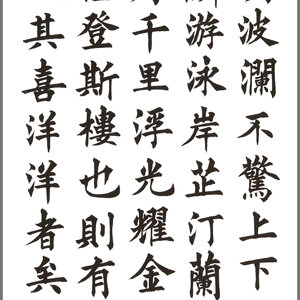 波瀾不驚上下
游泳岸芷汀蘭
千里浮光耀金
登斯樓也則有
其喜洋洋者矣